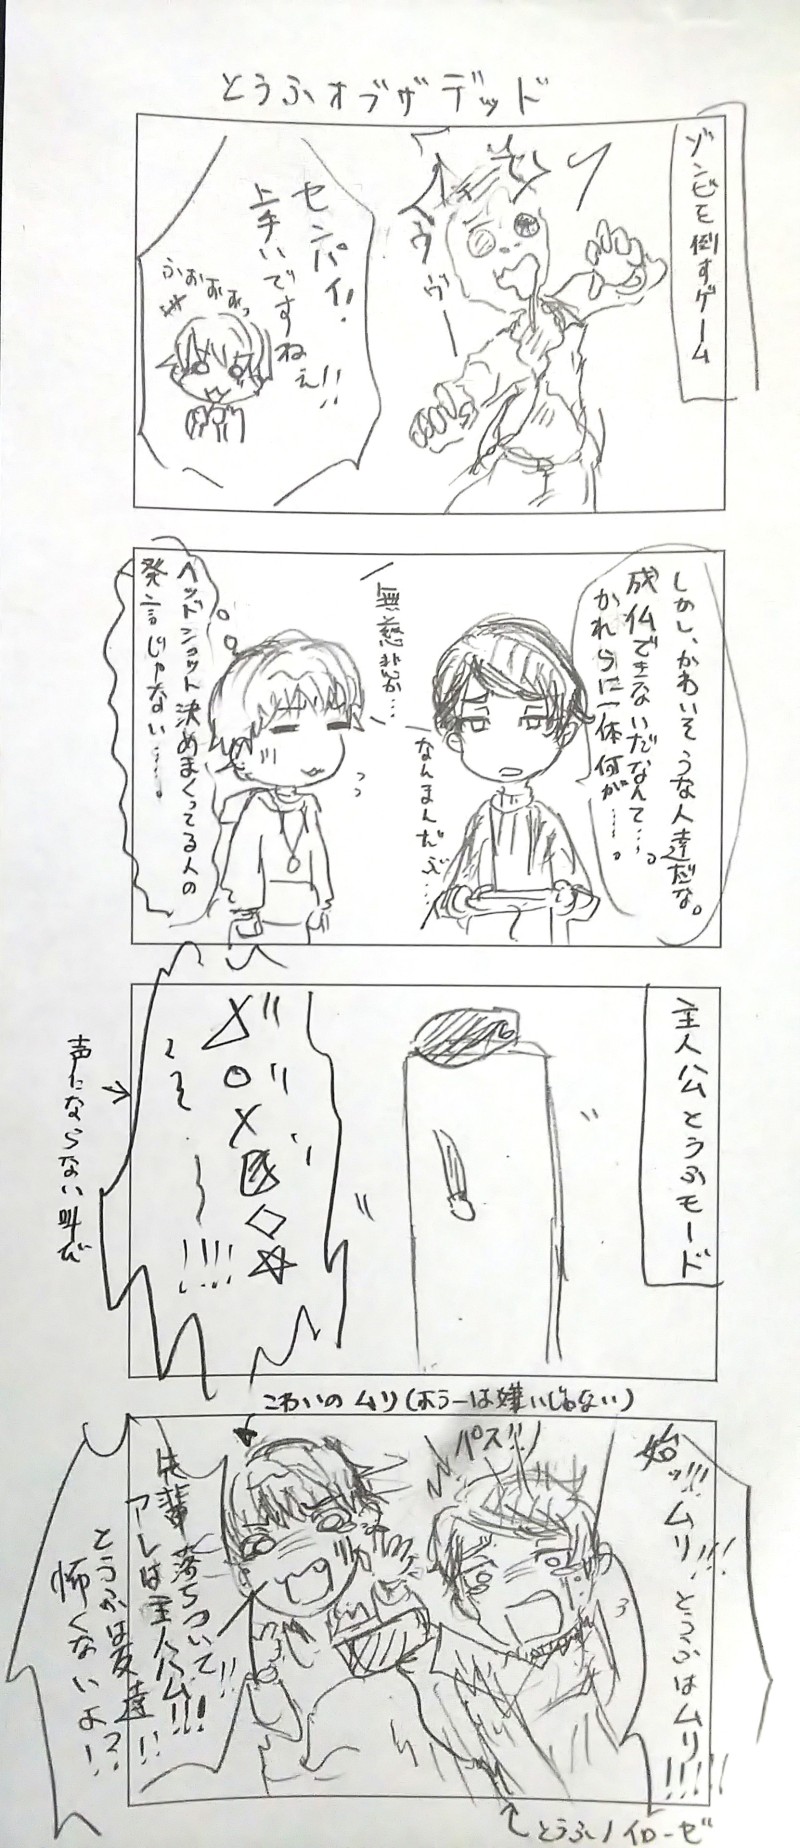 とうふオブザデッド
ゾンビを倒すゲーム
ヴヴー
センパイ!
上手いですねぇ!!
ふおぉぉぉっ
しかし、かわいそうな人達だな。
成仏できないだなんて…。
かれらに一体何が…。
無慈悲か…
なんまんだぶ…
ヘッドショット決めまくってる人の
発言じゃない…。
主人公とうふモード
声にならない叫び
こわいのムリ(ホラーは嫌いじゃない)
パス!!
始ッ!!!ムリ!!!とうふはムリ!!!!!
先輩落ちついて!!
アレは主人公!!!
とうふは友達!!
怖くないよ!?
とうふノイローゼ